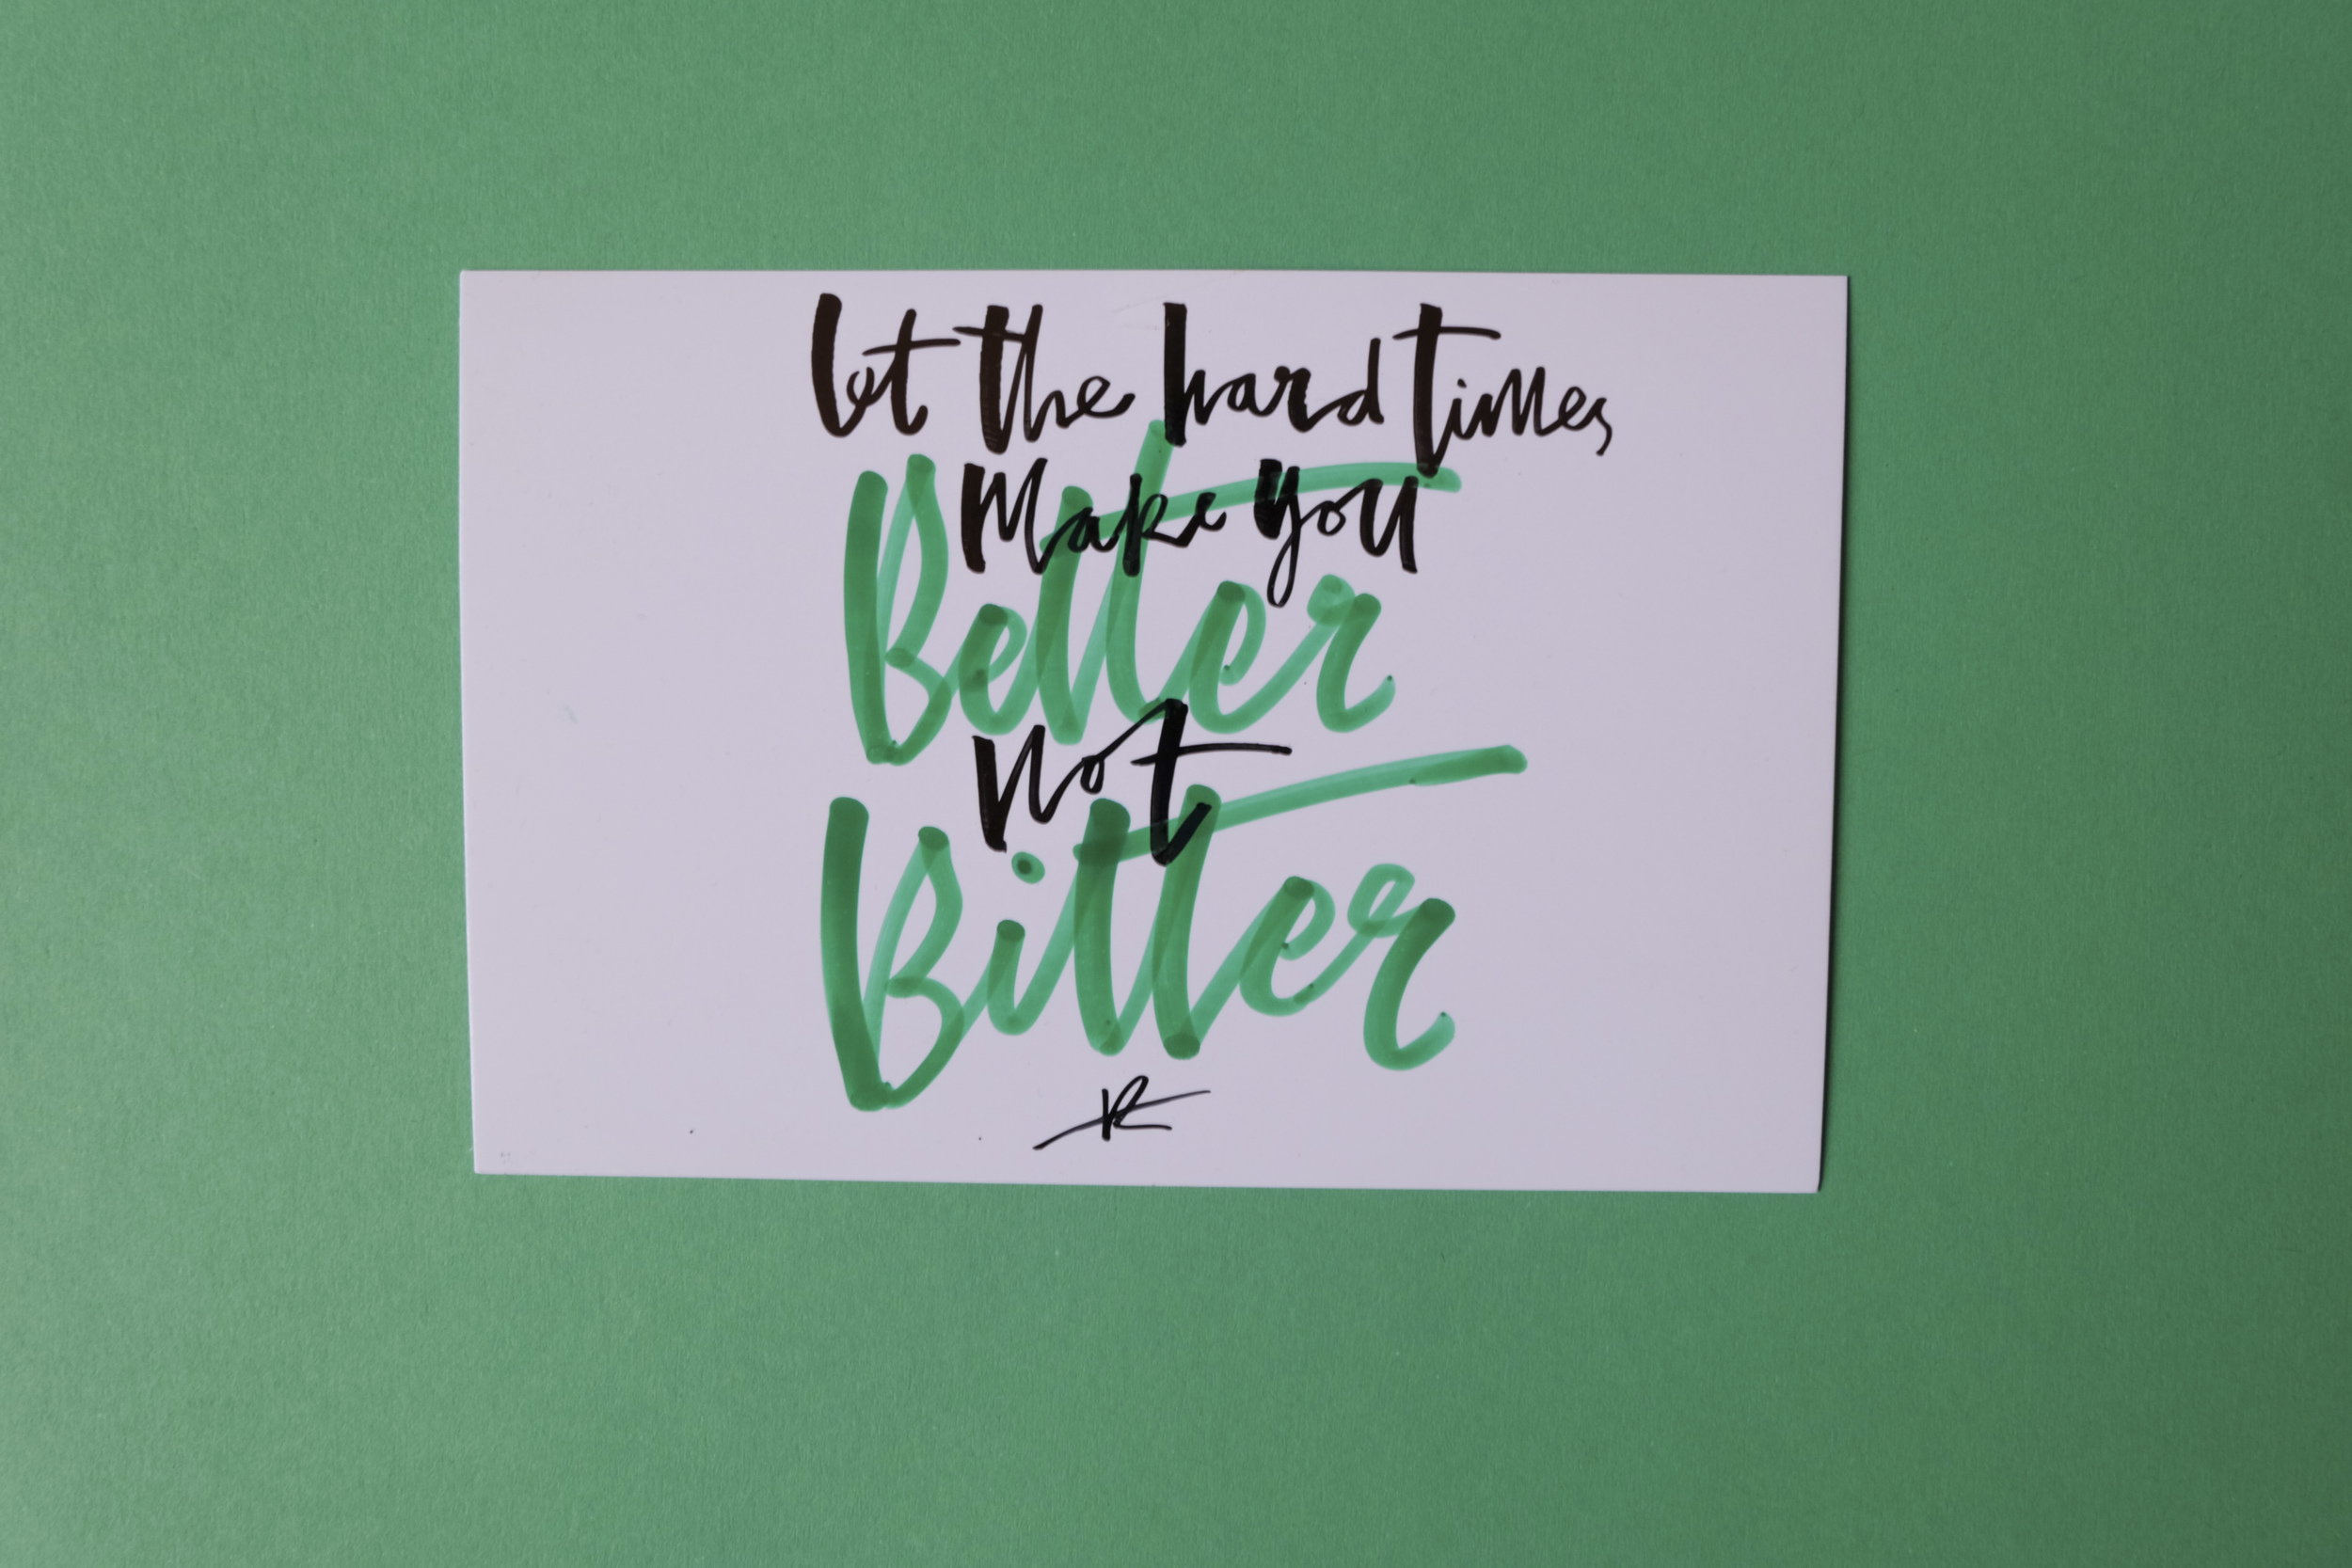 let the hard times
Make you
Better
not
Bitter
R